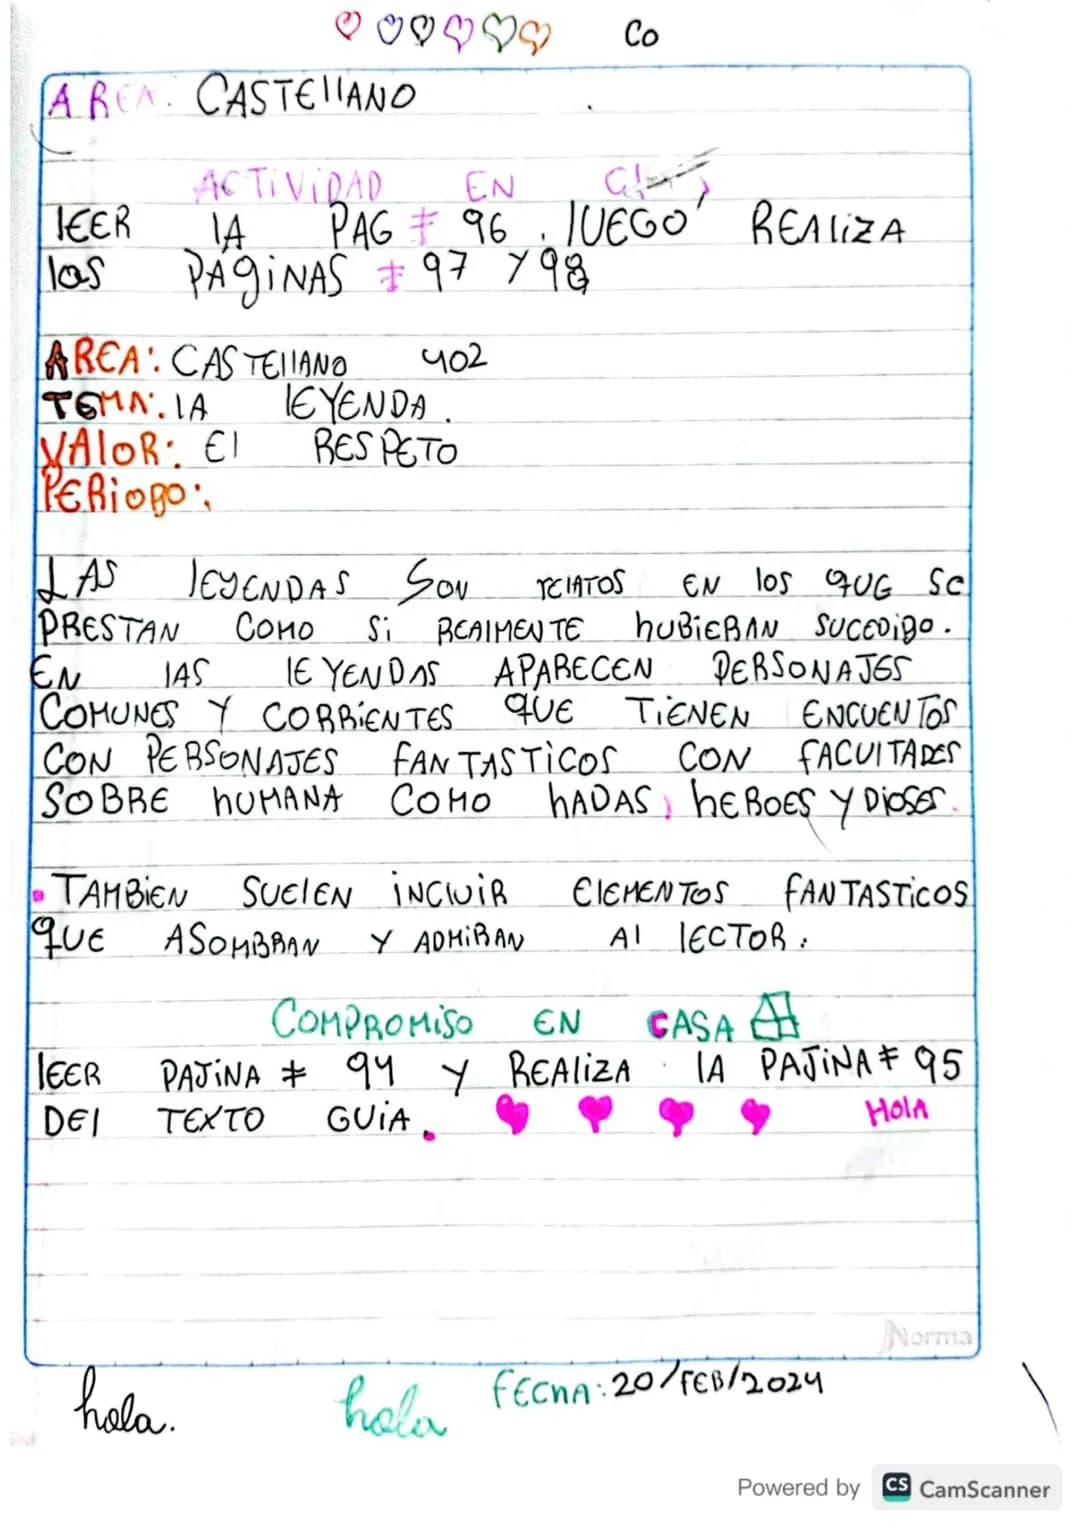 Co
AREA. CASTEllANO
ACTiViDAD EN
lEER lA PAG # 96 . lUEGO REAliZA
las PÁGiNAS # 97 Y 98
AREA: CASTEllANO 402
TEMA: lA lEYENDA.
VAlOR: El RESPETO
PERiODO:
LAS lEYENDAS SON rElATOS EN lOS QUE SE
PRESTAN COMO Si REAlMENTE hUBiERAN SUCEDiDO.
EN lAS lEYENDAS APARECEN PERSONAJES
COMUNES Y CORRiENTES QUE TiENEN ENCUENTOS
CON PERSONAJES FANTASTiCOS CON FACUlTADES
SOBRE hUMANA COMO hADAS, hEROES Y DiOSES.
• TAMBiEN SUElEN iNCluiR ElEMENTOS FANTASTiCOS
QUE ASOMBRAN Y ADMiRAN Al lECTOR.
COMPROMiSO EN CASA
lEER PAJiNA # 94 Y REAliZA lA PAJiNA # 95
DEl TEXTO GUiA. HOlA
Norma
hola. hola FECHA: 20/FEB/2024
Powered by CS CamScanner